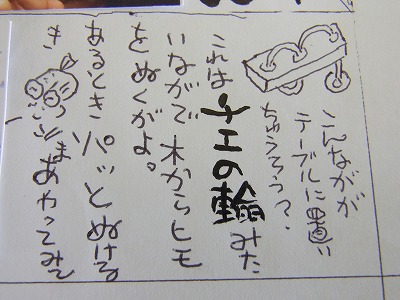 こんながが
テーブルに置い
ちゅうろう？
これは チエの輪 みた
いながで 木からヒモ
を ぬくがよ。
あるとき パッと ぬける
き
まあ やってみて